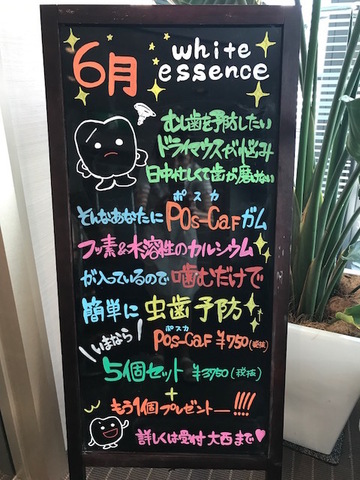 6月
white
essence
むし歯を予防したい
ドライマウスが悩み
日中忙しくて歯が磨けない
そんなあなたに POs-CaFガム
ポスカ
フッ素&水溶性のカルシウム
が入っているので噛むだけで
簡単に虫歯予防
いまなら
ポスカ
POs-CaF ¥750(税抜)
5個セット ¥3750(税抜)
+
もう1個プレゼントー!!!!
詳しくは受付 大西まで♥